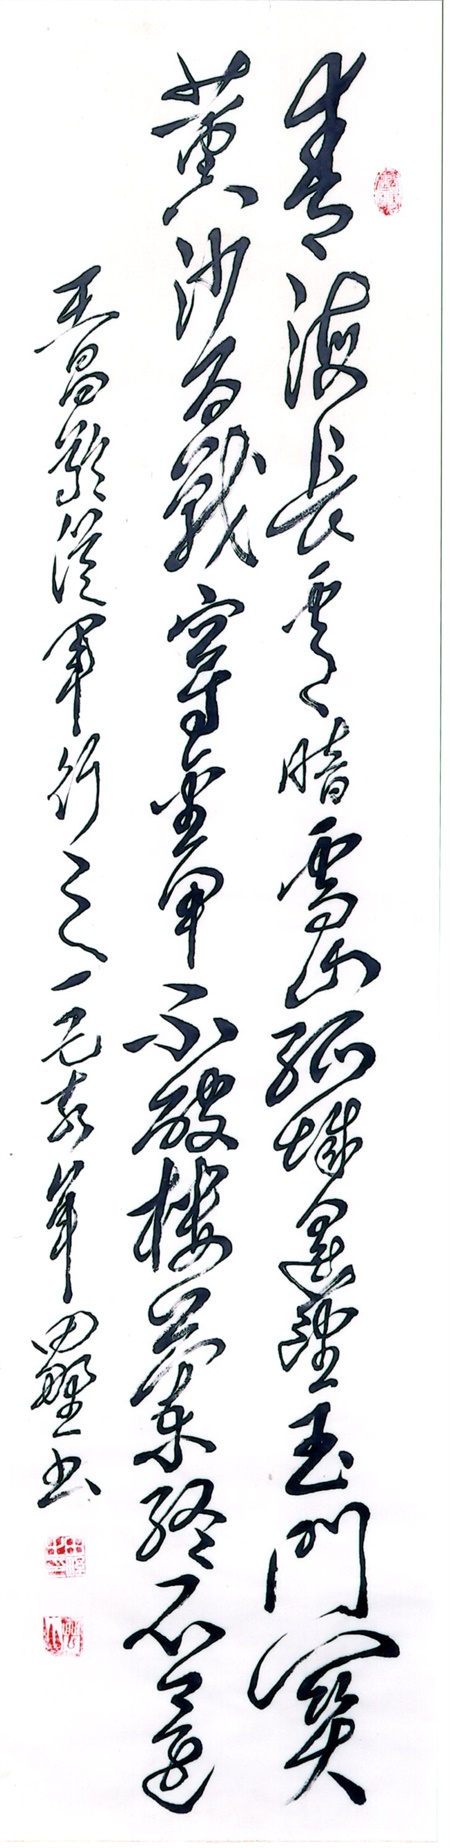 青海長雲暗雪山孤城遥望玉門関
黄沙百戰穿金甲不破楼蘭終不還
王昌齡從軍行之一己亥年田野书